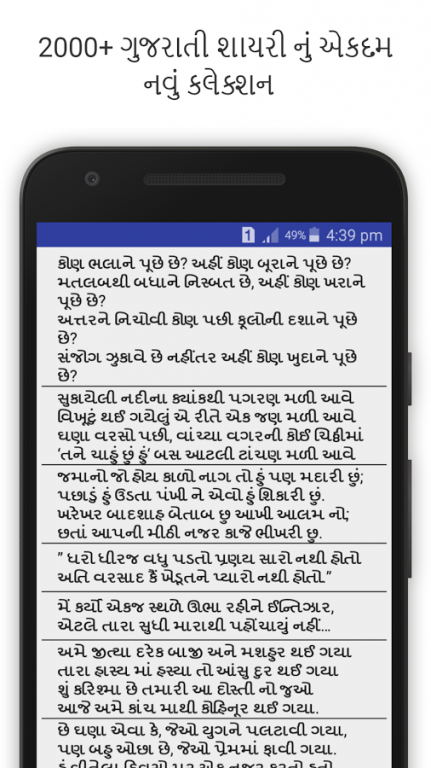 2000+ ગુજરાતી શાયરી નું એકદમ
નવું કલેક્શન
1 49% 4:39 pm
કોણ ભલાને પૂછે છે? અહીં કોણ બૂરાને પૂછે છે?
મતલબથી બધાને નિસ્બત છે, અહીં કોણ ખરાને
પૂછે છે?
અત્તરને નિચોવી કોણ પછી ફૂલોની દશાને પૂછે
છે?
સંજોગ ઝુકાવે છે નહીંતર અહીં કોણ ખુદાને પૂછે
છે?
સુકાયેલી નદીના ક્યાંકથી પગરણ મળી આવે
વિખૂટું થઈ ગયેલું એ રીતે એક જણ મળી આવે
ઘણા વરસો પછી, વાંચ્યા વગરની કોઈ ચિઠ્ઠીમાં
‘તને ચાહું છું હું’ બસ આટલી ટાંચણ મળી આવે
જમાનો જો હોય કાળો નાગ તો હું પણ મદારી છું;
પછાડું હું ઉડતા પંખી ને એવો હું શિકારી છું.
ખરેખર બાદશાહ બેતાબ છુ આખી આલમ નો;
છતાં આપની મીઠી નજર કાજે ભીખરી છુ.
” ધરો ધીરજ વધુ પડતો પ્રણય સારો નથી હોતો
અતિ વરસાદ કૈં ખેડૂતને પ્યારો નથી હોતો.”
મેં કર્યો એકજ સ્થળે ઊભા રહીને ઈન્તિઝાર,
એટલે તારા સુધી મારાથી પહોંચાયું નહીં...
અમે જીત્યા દરેક બાજી અને મશહુર થઈ ગયા
તારા હાસ્ય માં હસ્યા તો આંસુ દુર થઈ ગયા
શું કરિશ્મા છે તમારી આ દોસ્તી નો જુઓ
આજે અમે કાંચ માથી કોહિનૂર થઈ ગયા.
છે ઘણા એવા કે, જેઓ યુગને પલટાવી ગયા,
પણ બહુ ઓછા છે, જેઓ પ્રેમમાં ફાવી ગયા.